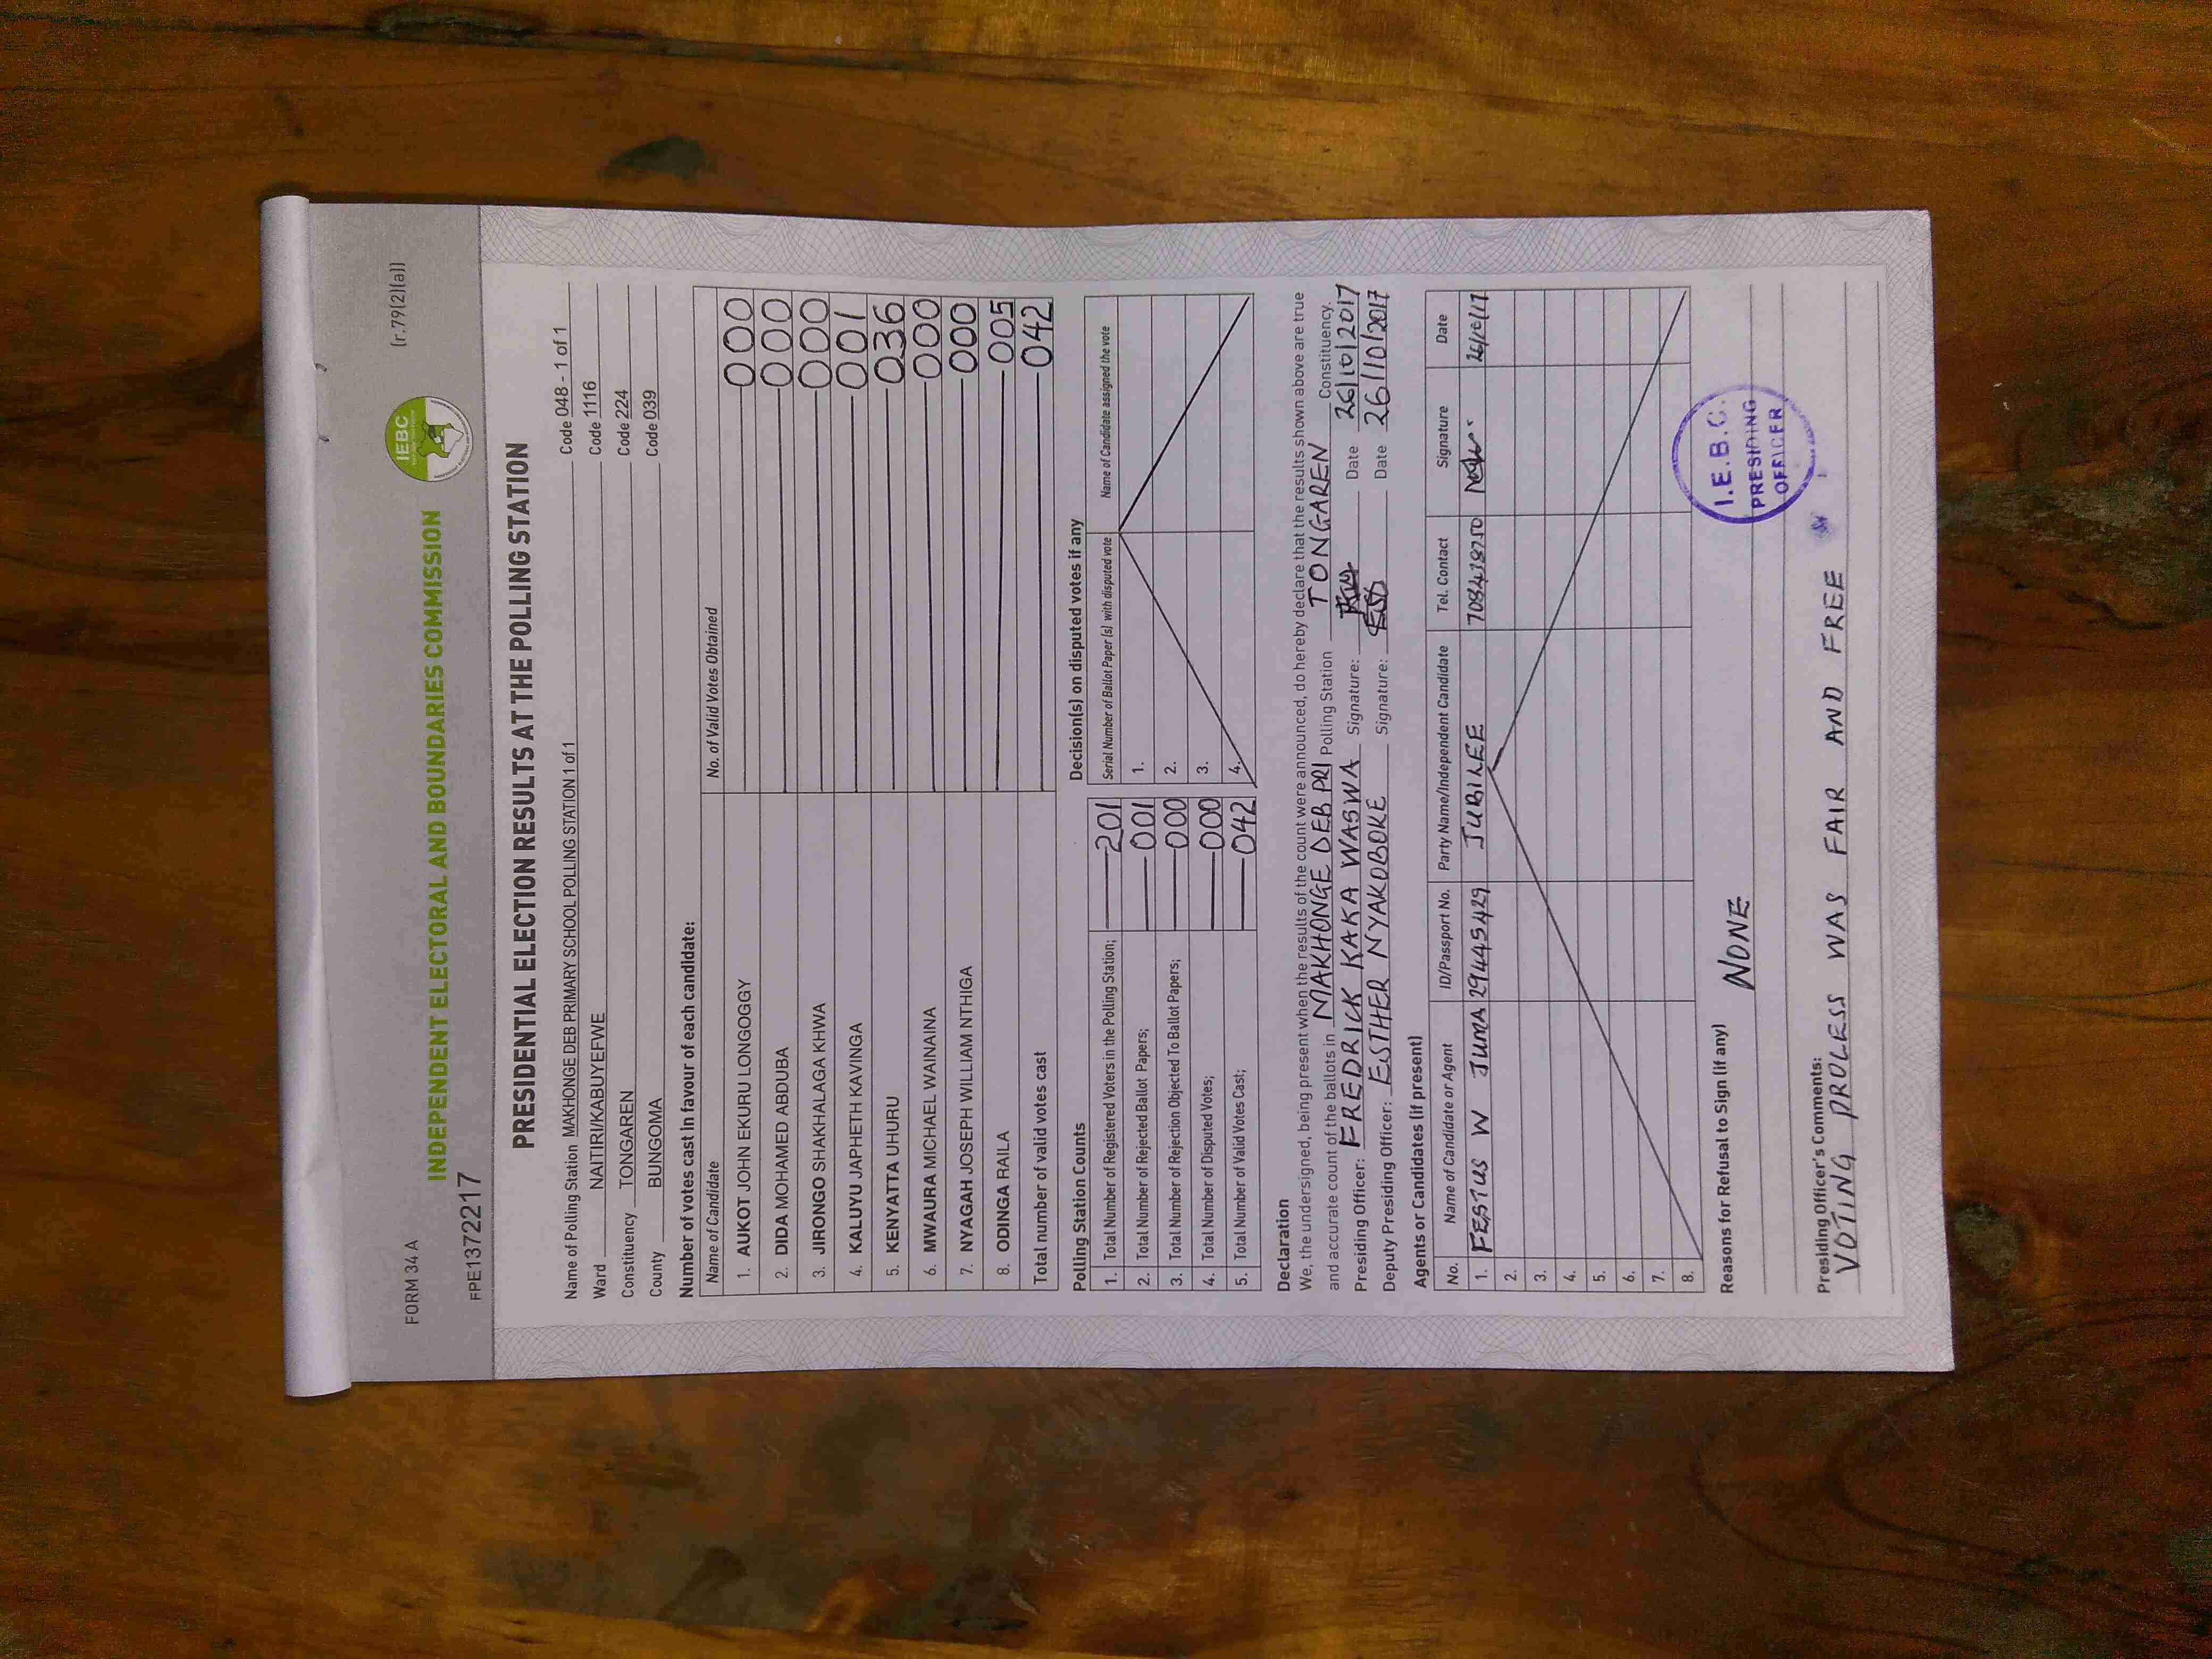 FORM 34 A
(r.79(2)(a))
IEBC
INDEPENDENT ELECTORAL AND BOUNDARIES COMMISSION
FPE1372217
PRESIDENTIAL ELECTION RESULTS AT THE POLLING STATION
Name of Polling Station MAKHONGE DEB PRIMARY SCHOOL POLLING STATION 1 of 1 Code 048 - 1 of 1
Ward NAITIRI/KABUYEFWE Code 1116
Constituency TONGAREN Code 224
County BUNGOMA Code 039
Number of votes cast in favour of each candidate:
Name of Candidate No. of Valid Votes Obtained
1. AUKOT JOHN EKURU LONGOGGY 000
2. DIDA MOHAMED ABDUBA 000
3. JIRONGO SHAKHALAGA KHWA 000
4. KALUYU JAPHETH KAVINGA 001
5. KENYATTA UHURU 036
6. MWAURA MICHAEL WAINAINA 000
7. NYAGAH JOSEPH WILLIAM NTHIGA 000
8. ODINGA RAILA 005
Total number of valid votes cast 042
Polling Station Counts
1. Total Number of Registered Voters in the Polling Station; 201
2. Total Number of Rejected Ballot Papers; 001
3. Total Number of Rejection Objected To Ballot Papers; 000
4. Total Number of Disputed Votes; 000
5. Total Number of Valid Votes Cast; 042
Decision(s) on disputed votes if any
Serial Number of Ballot Paper (s) with disputed vote Name of Candidate assigned the vote
1.
2.
3.
4.
Declaration
We, the undersigned, being present when the results of the count were announced, do hereby declare that the results shown above are true
and accurate count of the ballots in MAKHONGE DEB PRI Polling Station TONGAREN Constituency.
Presiding Officer: FREDRICK KAKA WASWA Signature: Date 26/10/2017
Deputy Presiding Officer: ESTHER NYAKOBOKE Signature: Date 26/10/2017
Agents or Candidates (if present)
No. Name of Candidate or Agent ID/Passport No. Party Name/Independent Candidate Tel. Contact Signature Date
1. FESTUS W JUMA 29445429 JUBILEE 708418750 26/10/17
2.
3.
4.
5.
6.
7.
8.
Reasons for Refusal to Sign (if any)
NONE
I.E.B.C.
PRESIDING
OFFICER
Presiding Officer's Comments:
VOTING PROLESS WAS FAIR AND FREE